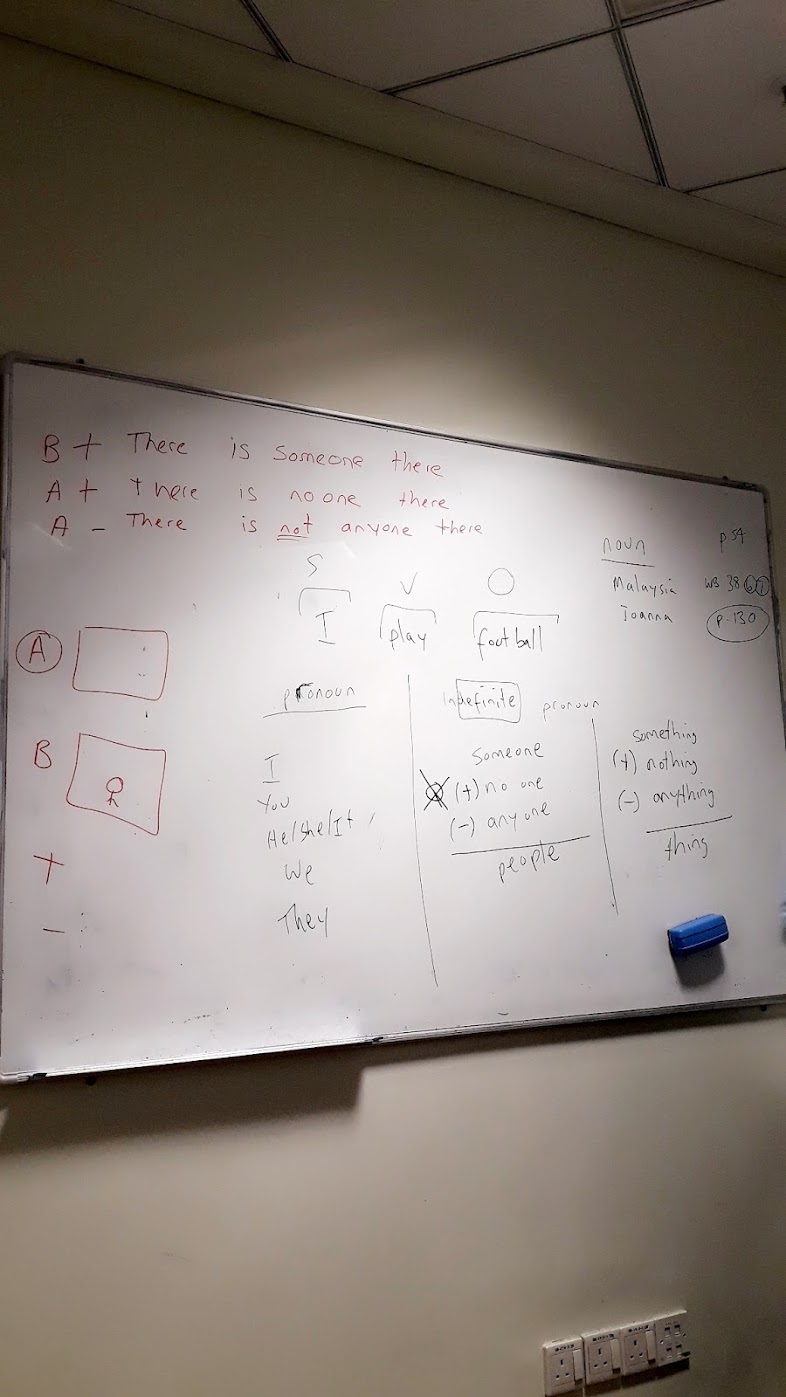 B + There is someone there
A + there is no one there
A - There is not anyone there
noun
p 54
Malaysia
WB 38 6 7
Ioanna
p. 130
S V O
I play football
A
B
+
-
pronoun
I
You
He/She/It
We
They
Indefinite pronoun
Someone
(+) no one
(-) anyone
people
something
(+) nothing
(-) anything
thing